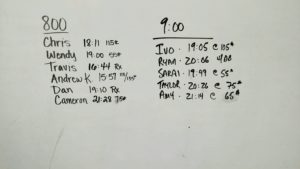 800
Chris 18:11 115#
Wendy 19:00 55#
Travis 16:44 Rx
Andrew K 15:57 115#
Dan 19:10 Rx
Cameron 21:28 75#
9:00
Ivo - 19:05 @ 105#
Ryan - 20:06
Sarai - 19:49 @ 55#
Taylor - 20:26 @ 75#
Amy - 21:14 @ 65#